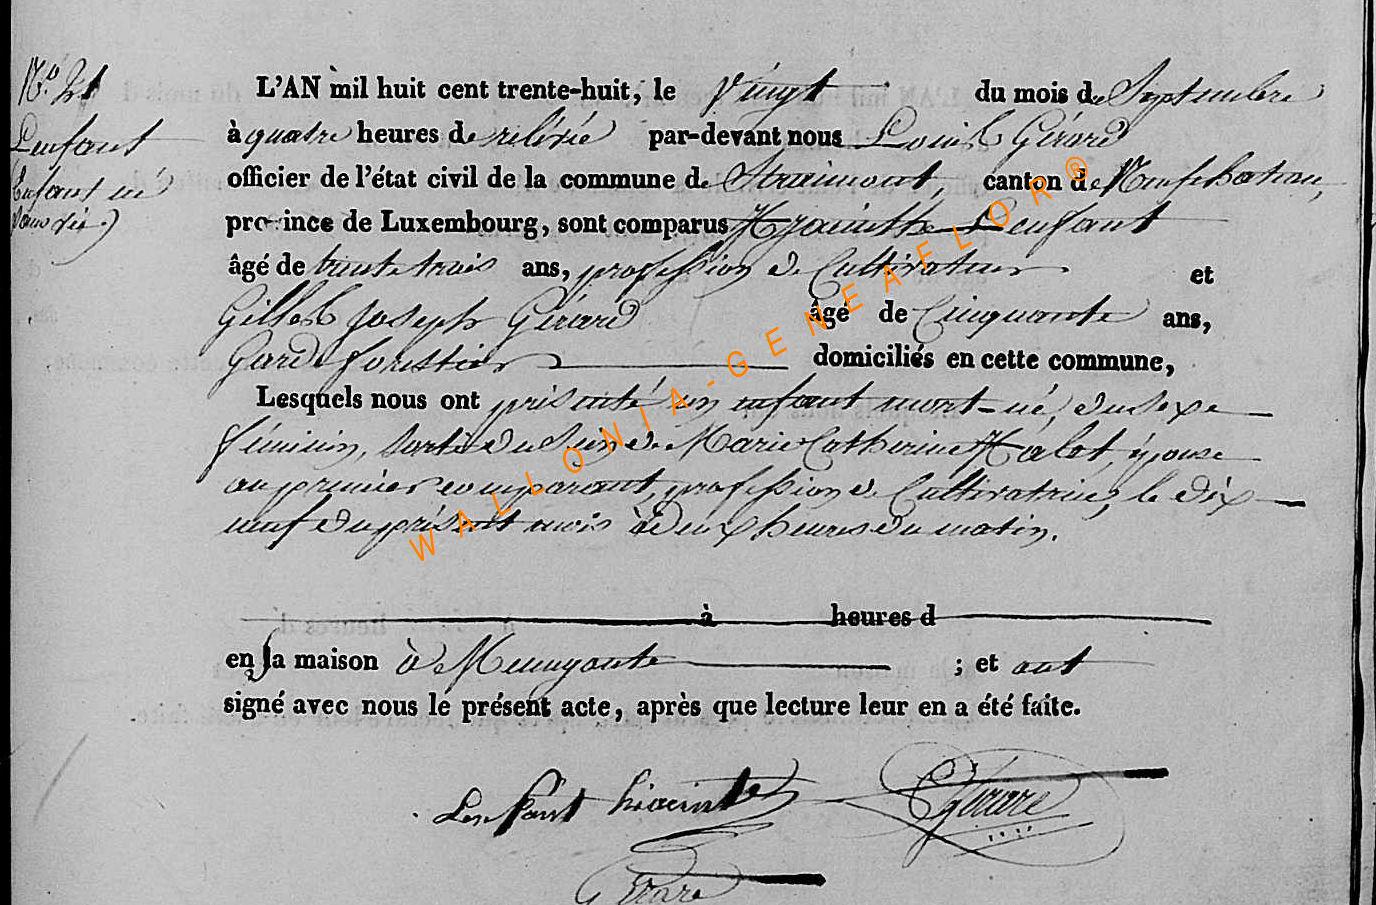 N.° 21
Lenfant
(Enfant né
sans vie.)
L'AN mil huit cent trente-huit, le vingt du mois de Septembre
à quatre heures de relévée par-devant nous Louis Gérard
officier de l'état civil de la commune de Straimont, canton de Neufchateau,
province de Luxembourg, sont comparus Hyacinthe Lenfant
âgé de trente trois ans, profession de Cultivateur et
Gilles Joseph Gérard âgé de Cinquante ans,
Garde forestier domiciliés en cette commune,
Lesquels nous ont présenté un enfant mort-né, du sexe
féminin, sorti du Sein de Marie Catherine Halot, épouse
au premier comparant, profession de Cultivatrice, le dix
neuf du présent mois à deux heures du matin.
à heures d
en sa maison à Menugoutte ; et ont
signé avec nous le présent acte, après que lecture leur en a été faite.
Lenfant hiacinte
Gérard
Gérard
WALLONIA-GENEAFLOR®